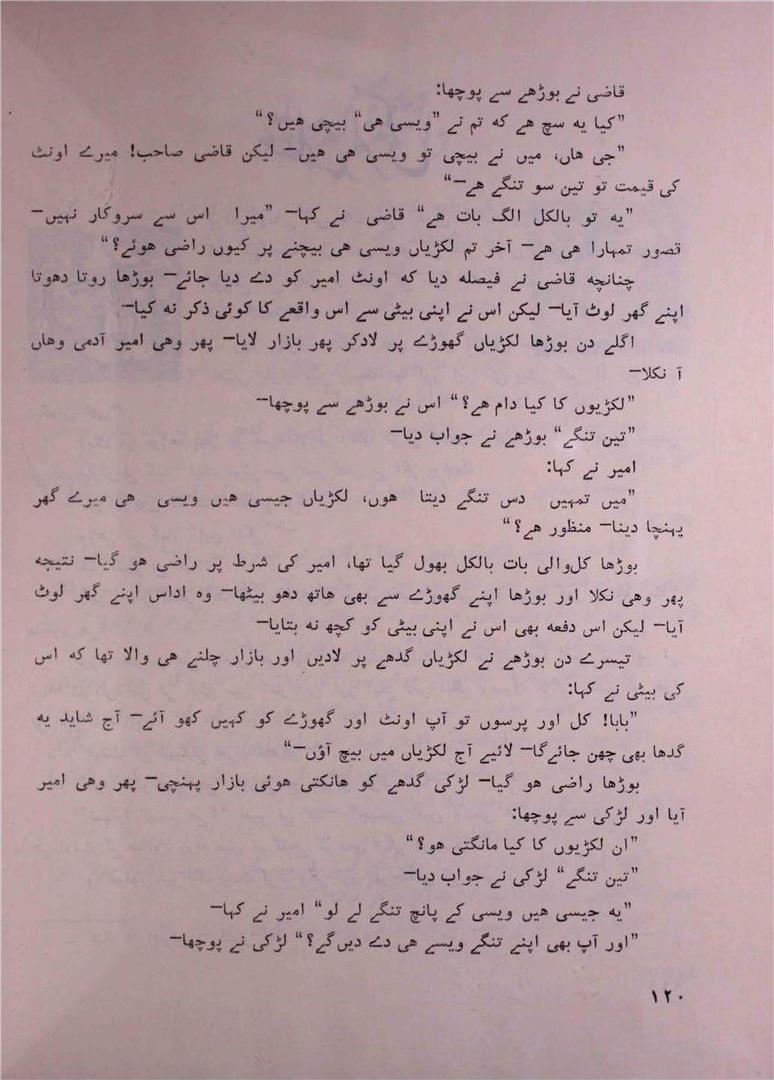 قاضی نے بوڑھے سے پوچھا:
”کیا یه سچ هے که تم نے ”ویسی هی“ بیچی هیں؟“
”جی هاں، میں نے بیچی تو ویسی هی هیں— لیکن قاضی صاحب! میرے اونٹ
کی قیمت تو تین سو تنگے هے—“
”یه تو بالکل الگ بات هے“ قاضی نے کہا— ”میرا اس سے سروکار نہیں—
قصور تمہارا هی هے— آخر تم لکڑیاں ویسی هی بیچنے پر کیوں راضی هوئے؟“
چنانچه قاضی نے فیصله دیا که اونٹ امیر کو دے دیا جائے— بوڑھا روتا دھوتا
اپنے گھر لوٹ آیا— لیکن اس نے اپنی بیٹی سے اس واقعے کا کوئی ذکر نه کیا—
اگلے دن بوڑھا لکڑیاں گھوڑے پر لادکر پھر بازار لایا— پھر وهی امیر آدمی وهاں
آ نکلا—
”لکڑیوں کا کیا دام هے؟“ اس نے بوڑھے سے پوچھا—
”تین تنگے“ بوڑھے نے جواب دیا—
امیر نے کہا:
”میں تمہیں دس تنگے دیتا هوں، لکڑیاں جیسی هیں ویسی هی میرے گھر
پہنچا دینا— منظور هے؟“
بوڑھا کل‌والی بات بالکل بھول گیا تھا، امیر کی شرط پر راضی هو گیا— نتیجه
پھر وهی نکلا اور بوڑھا اپنے گھوڑے سے بھی هاتھ دھو بیٹھا— وه اداس اپنے گھر لوٹ
آیا— لیکن اس دفعه بھی اس نے اپنی بیٹی کو کچھ نه بتایا—
تیسرے دن بوڑھے نے لکڑیاں گدھے پر لادیں اور بازار چلنے هی والا تھا که اس
کی بیٹی نے کہا:
”بابا! کل اور پرسوں تو آپ اونٹ اور گھوڑے کو کہیں کھو آئے— آج شاید یه
گدھا بھی چھن جائےگا— لائیے آج لکڑیاں میں بیچ آؤں—“
بوڑھا راضی هو گیا— لڑکی گدھے کو هانکتی هوئی بازار پہنچی— پھر وهی امیر
آیا اور لڑکی سے پوچھا:
”ان لکڑیوں کا کیا مانگتی هو؟“
”تین تنگے“ لڑکی نے جواب دیا—
”یه جیسی هیں ویسی کے پانچ تنگے لے لو“ امیر نے کہا—
”اور آپ بھی اپنے تنگے ویسے هی دے دیں‌گے؟“ لڑکی نے پوچھا—
۱۲۰